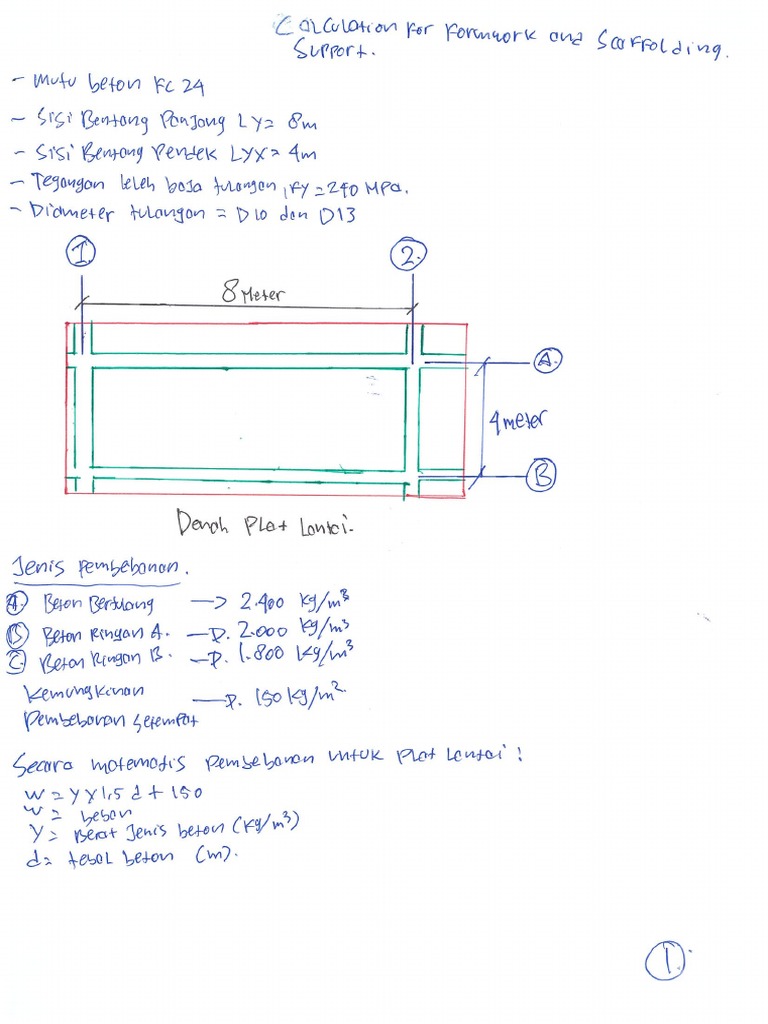 Calculation For Formwork and Scaffolding
Support.
- Mutu beton FC 24
- Sisi Bentang Panjang LY = 8m
- Sisi Bentang Pendek LYX = 4m
- Tegangan leleh baja tulangan, FY = 240 MPa.
- Diameter tulangan = D10 dan D13
1. 2.
8 Meter
A.
4 meter
B
Denah Plat Lantai.
Jenis Pembebanan.
A. Beton Bertulang → 2.400 kg/m³
B Beton Ringan A. → 2.000 kg/m³
C. Beton Ringan B. → 1.800 kg/m³
Kemungkinan → 150 kg/m².
Pembebanan setempat
Secara matematis pembebanan untuk plat lantai :
W = Y x 1,5 d + 150
W = beban
Y = Berat Jenis beton (kg/m³)
d = tebal beton (m).
1.